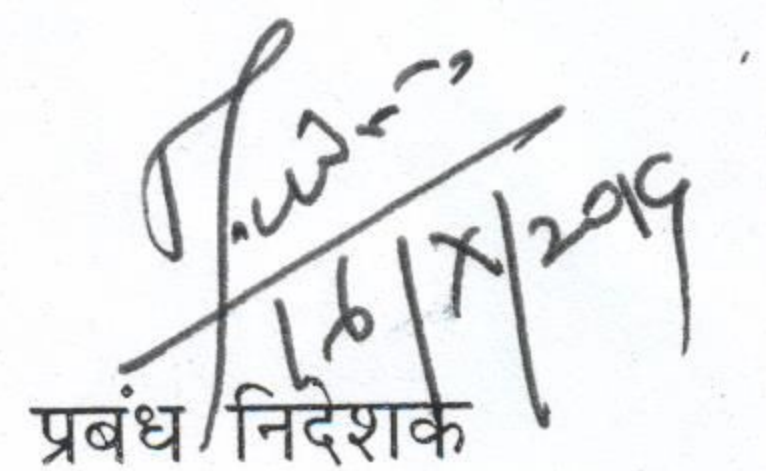 16/X/2019
प्रबंध निदेशक